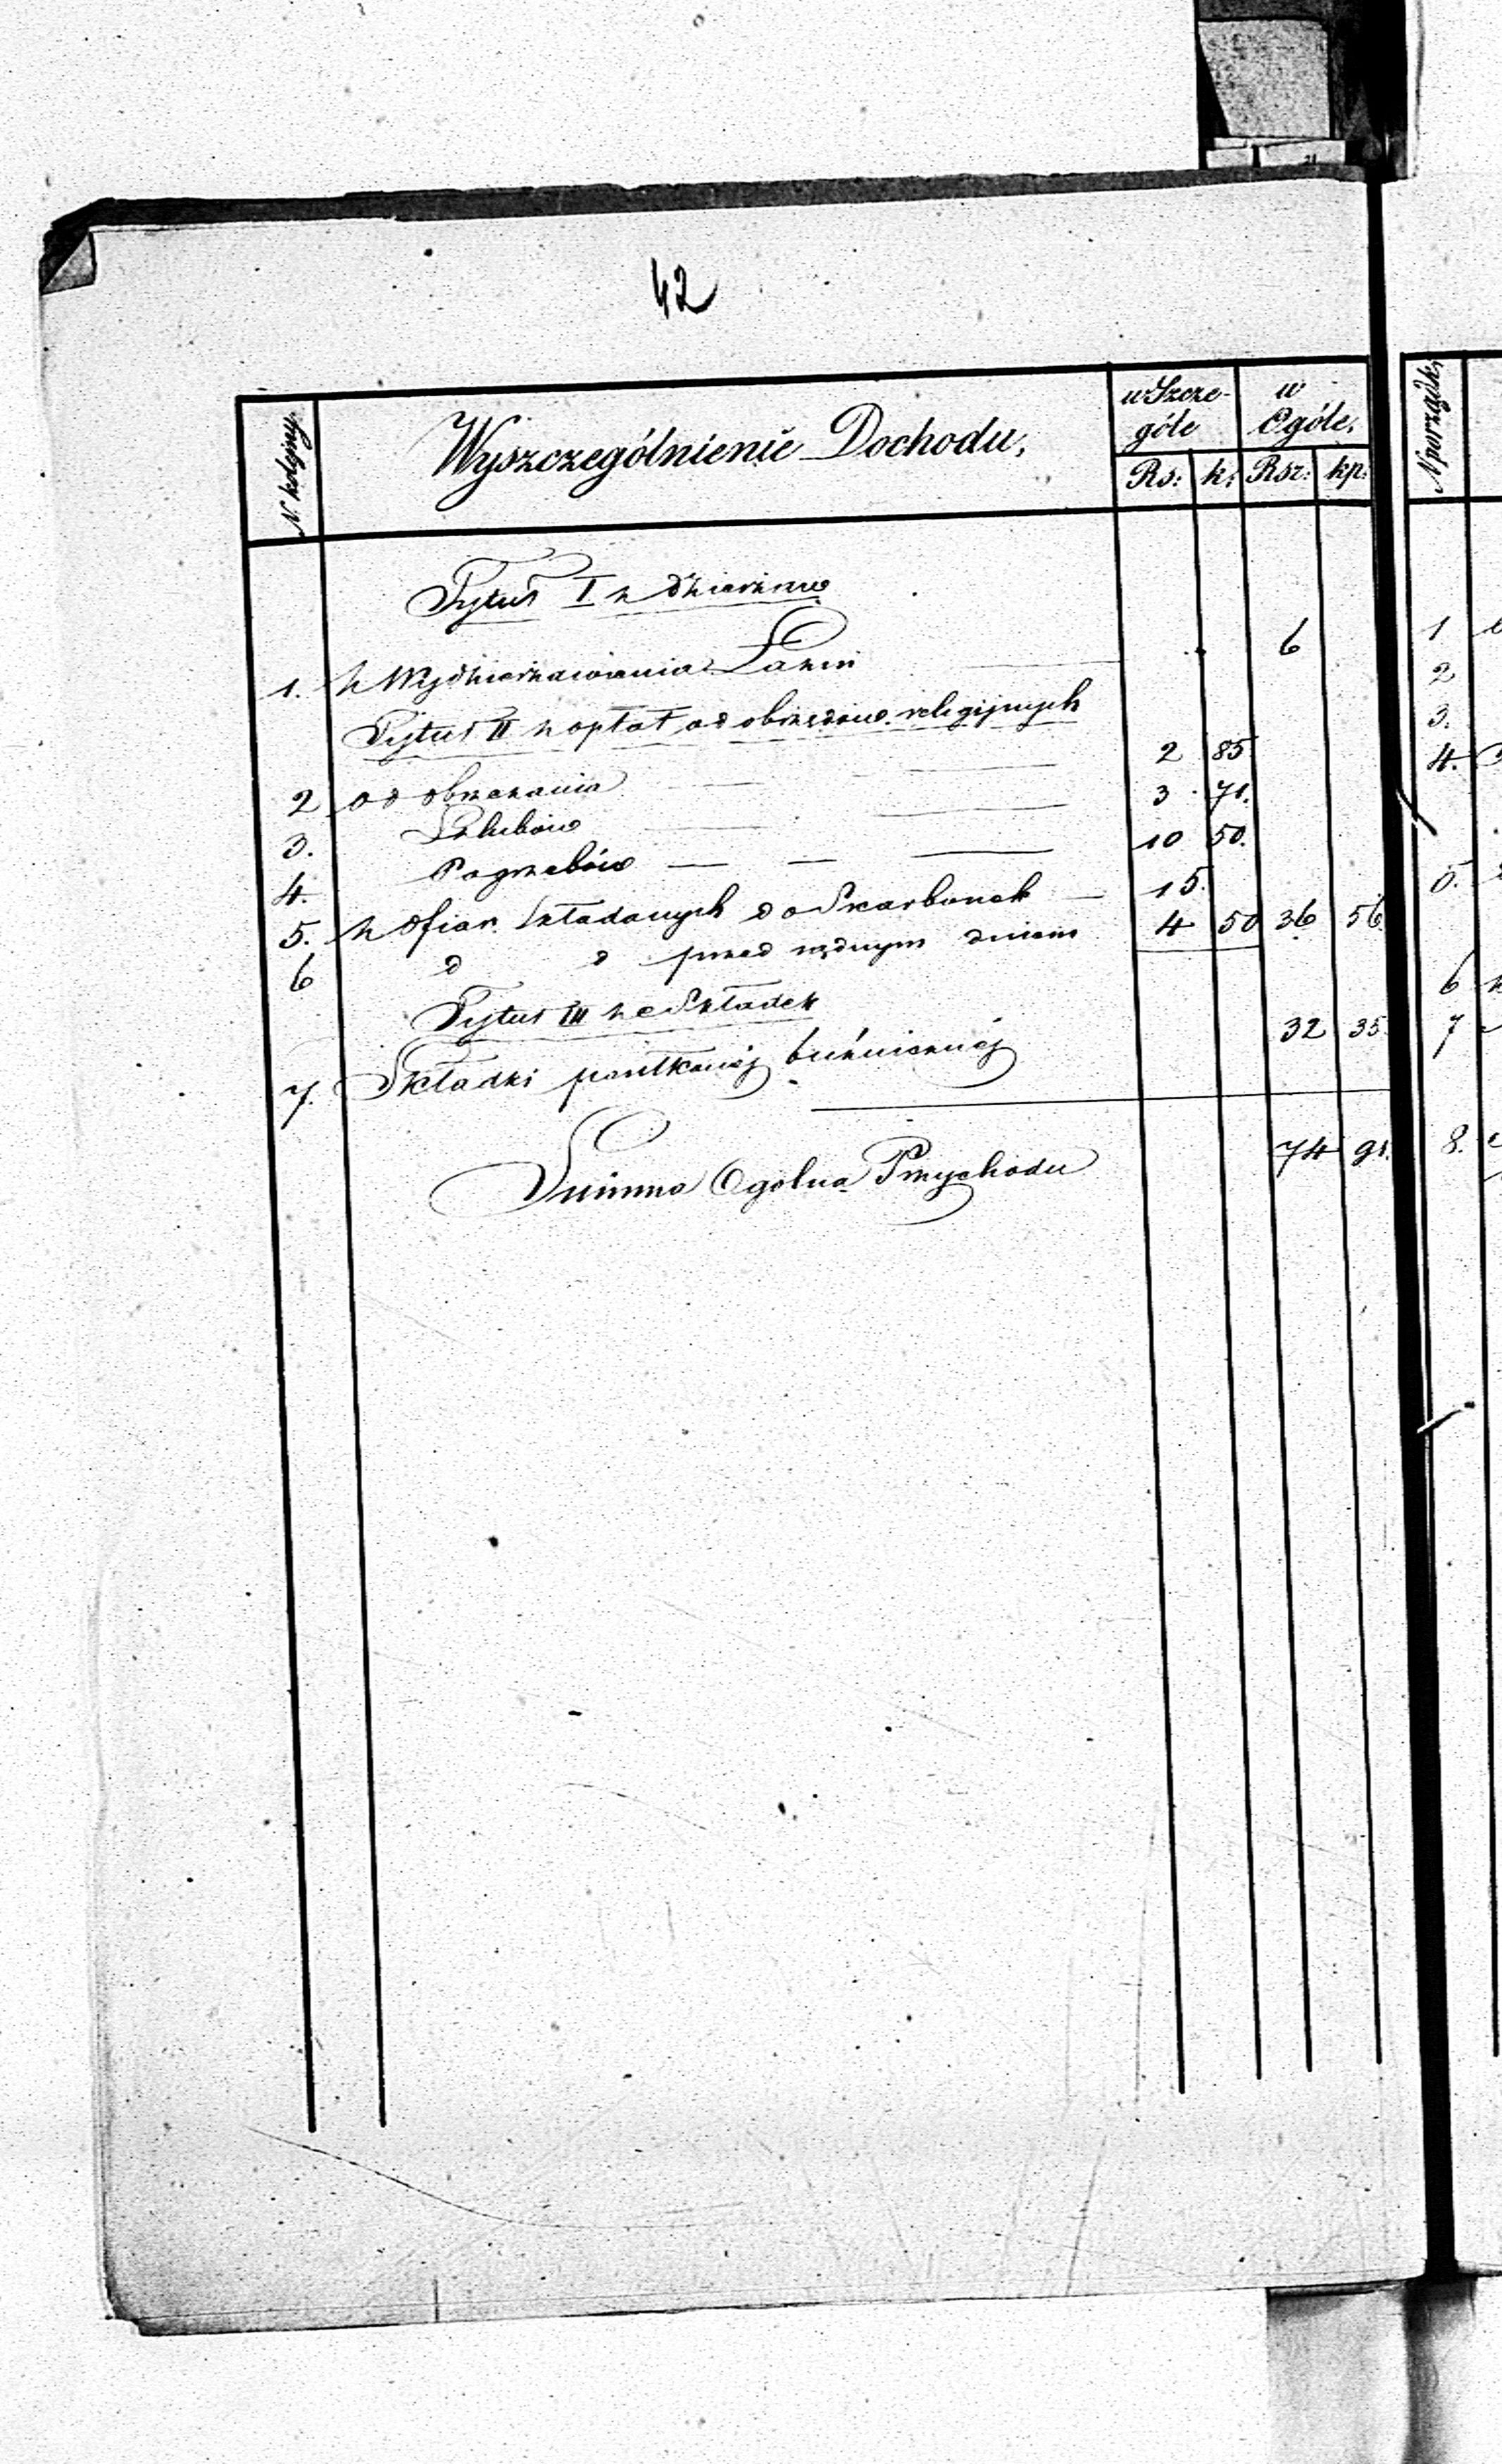 42
N. kolejny. Wyszczególnienie Dochodu, w Szcze-góle w Ogóle,
Rs: k: Rsz: kp:
Tytuł I z dzierżaw
1. z Wydzierżawienia Łazni 6
Tytuł II z opłat od obrzędów religijnych
2 od obrzezania 2 85
3. Szlubów 3 71.
4. Pogrzebów 10 50.
5. z Ofiar składanych do Skarbonek 15.
6 d d przed sądnym dniem 4 50 36 56
Tytuł III ze Składek
7. Składki bużnicznej 32 35
Summa Ogólna Przychodu 74 91.
N porządk:
1
2
3.
4.
5.
6
7
8.